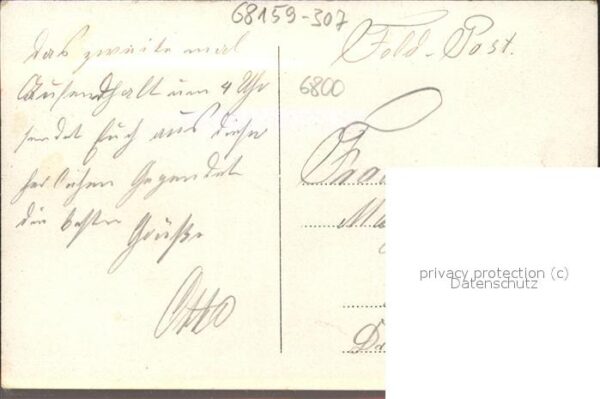 68159-307
Das zweite mal
Aufendhalt um 4 Uhr
sendet Euch aus dieser
herlichen Gegendet
die besten
Grüße
Otto
Feld-Post.
6800
Frau
privacy protection (c)
Datenschutz